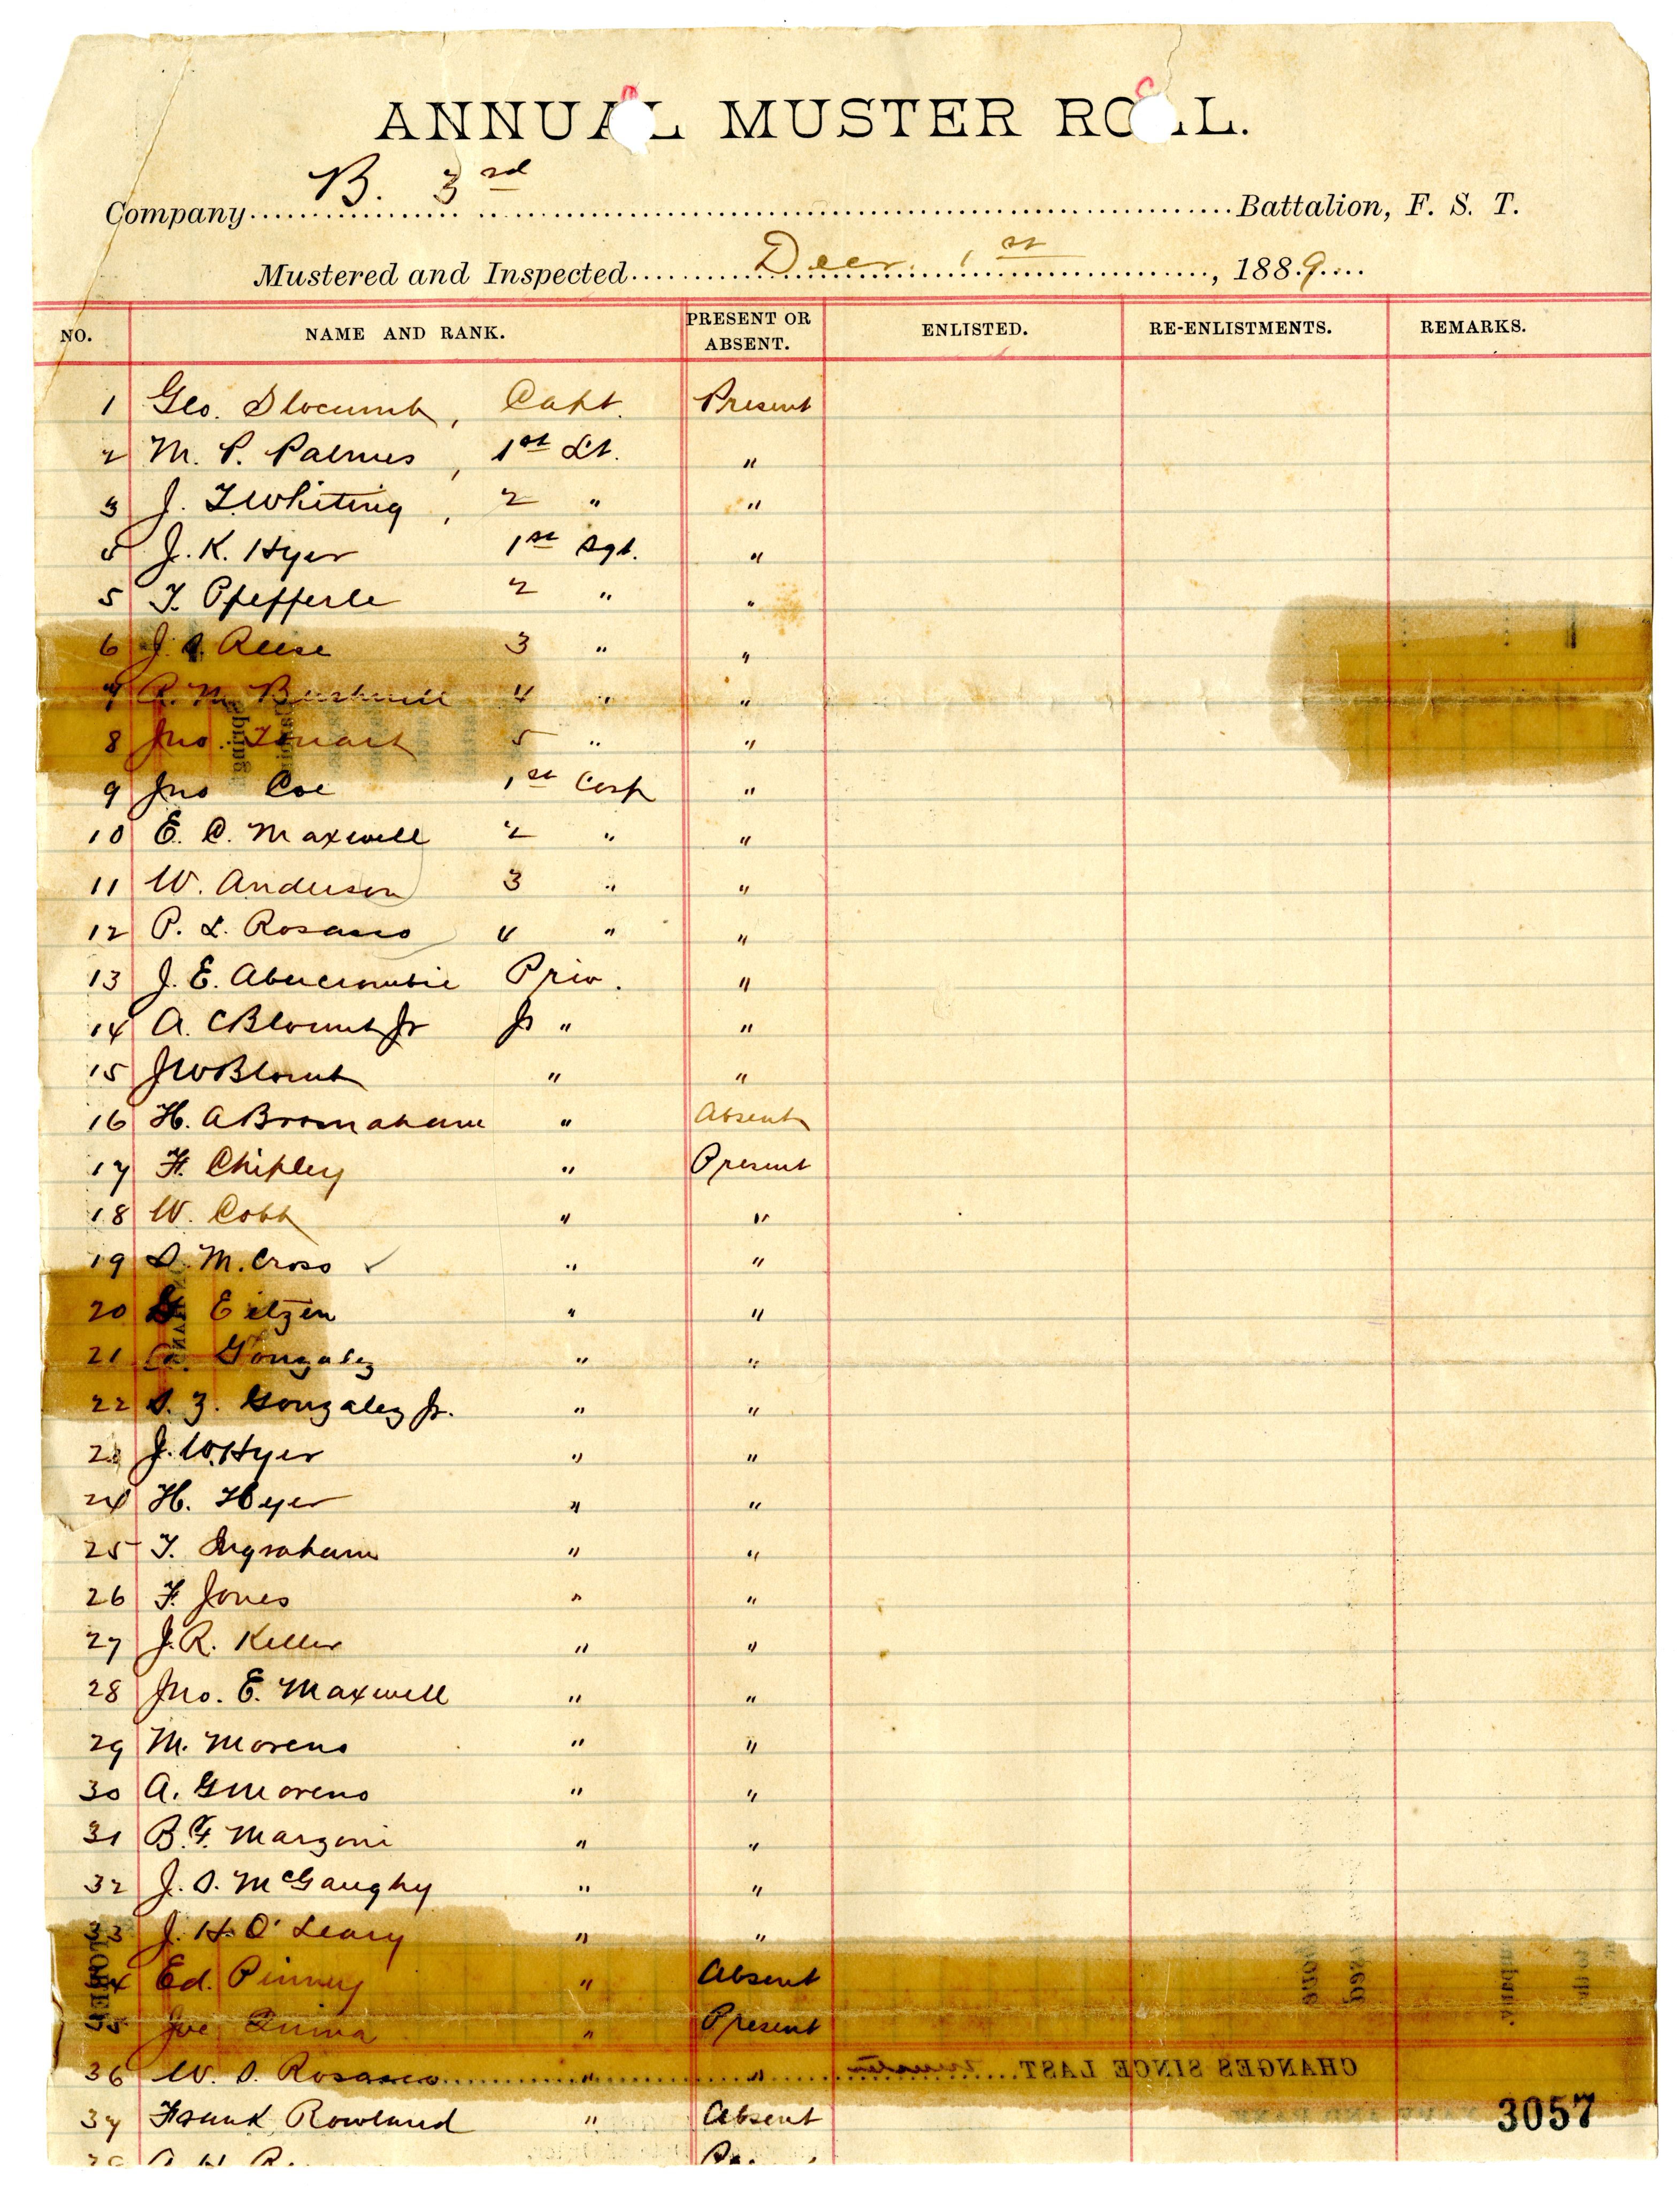 ANNUAL MUSTER ROLL.
Company B. 3rd Battalion, F. S. T.
Mustered and Inspected Decr. 1st, 1889
NO. NAME AND RANK. PRESENT OR ABSENT. ENLISTED. RE-ENLISTMENTS. REMARKS.
1 Geo. Slocumb, Capt. Present
2 M. P. Palmes, 1st Lt. "
3 J. F. Whiting, 2 " "
4 J. K. Hyer 1st Sgt. "
5 F. Pfefferle 2 " "
6 J. S. Reese 3 " "
7 R. M. Bushnell 4 " "
8 Jno. Touart 5 " "
9 Jno Coe 1st Corp "
10 E. C. Maxwell 2 " "
11 W. Anderson 3 " "
12 P. L. Rosasco 4 " "
13 J. E. Abercrombie Priv. "
14 A. C Blount Jr Jr " "
15 J W Blount " "
16 H. A Bromaham " Absent
17 F. Chipley " Present
18 W. Cobb " "
19 S. M. Cross ✓ " "
20 Eitzen " "
21 Gonzalez " "
22 S. Z. Gonzalez Jr. " "
23 J. W. Hyer " "
24 H. Hyer " "
25 F. Ingraham " "
26 F. Jones " "
27 J. R. Keller " "
28 Jno. E. Maxwell " "
29 M. Moreno " "
30 A. G Moreno " "
31 B. F. Marzoni " "
32 J. S. McGaughy " "
33 J. H. O'Leary " "
34 Ed. Pinney " Absent
35 Joe Quina " Present
36 W. S. Rosasco " "
CHANGES SINCE LAST muster
37 Frank Rowland " Absent
3057